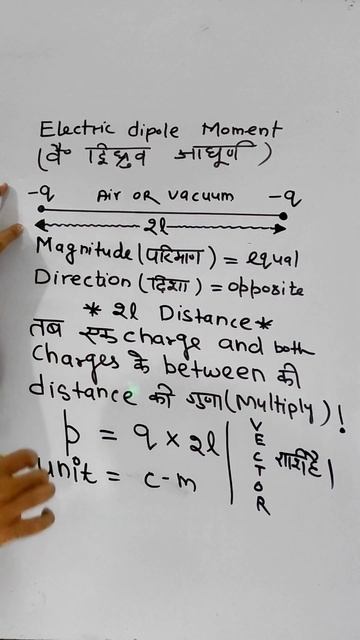 Electric dipole Moment
(वै द्विध्रुव आघूर्ण)
-q Air OR Vacuum -q
2l
Magnitude (परिमाण) = equal
Direction (दिशा) = opposite
* 2l Distance *
तब एक charge and both
charges के between की
distance की गुणा (Multiply)!
p = q × 2l
unit = c-m
VECTOR राशि है।